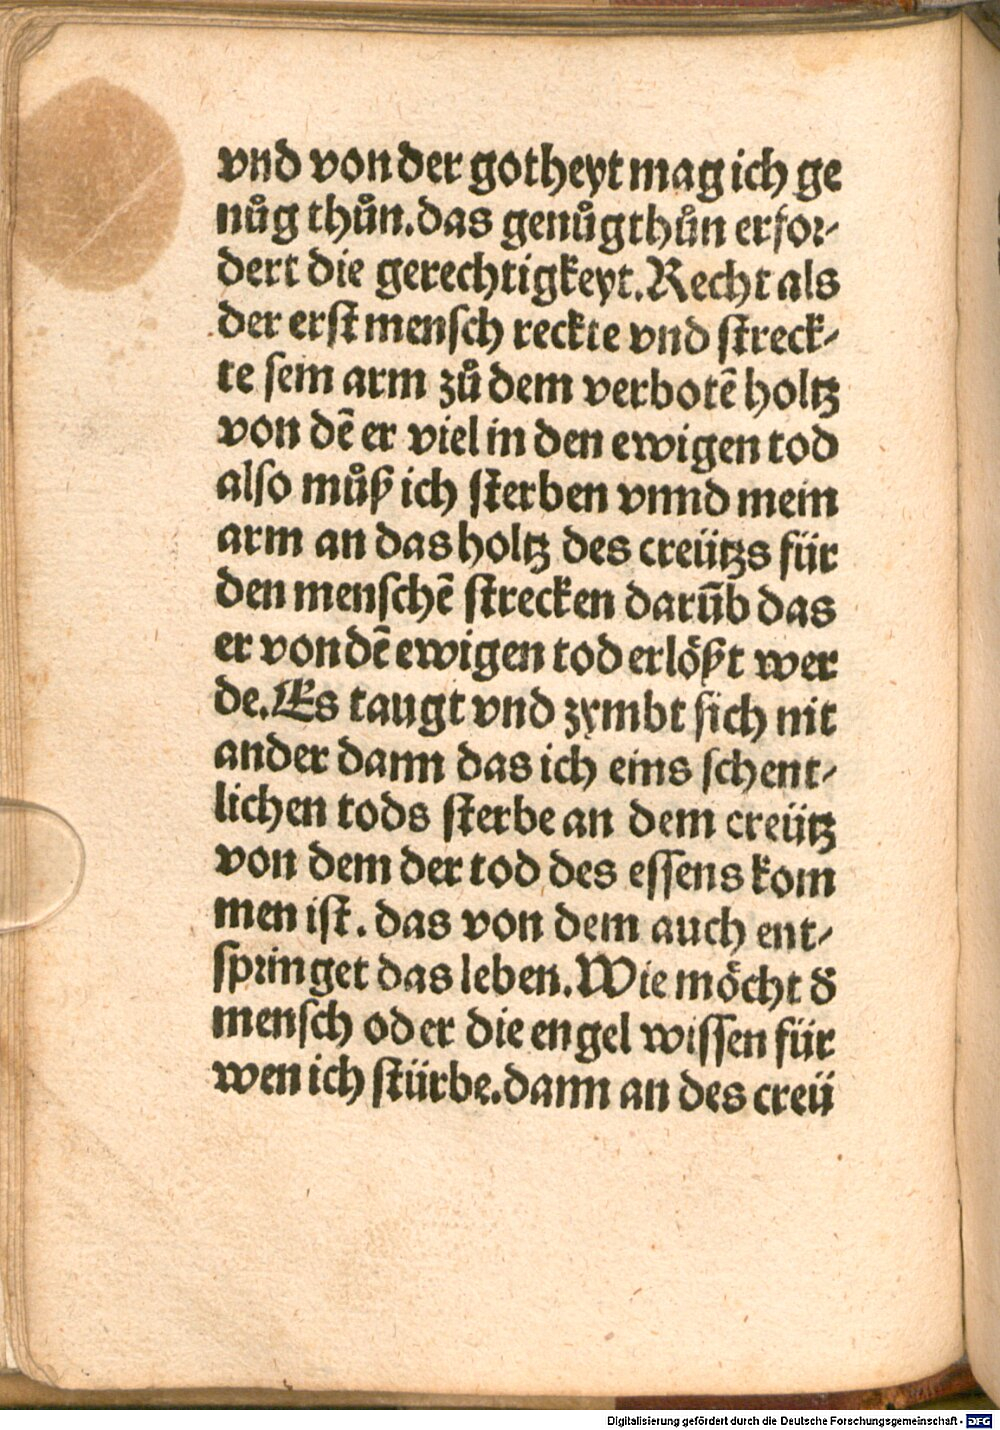 vnd von der gotheyt mag ich ge
nůg thůn.das genůgthůn erfor-
dert die gerechtigkeyt.Recht als
der erst mensch reckte vnd streck-
te sein arm zů dem verbotē holtz
von dē er viel in den ewigen tod
also můß ich sterben vnnd mein
arm an das holtz des creütz​s für
den menschē strecken darūb das
er von dē ewigen tod erlößt wer
de.Es taugt vnd zymbt sich nit
ander dann das ich eins schent-
lichen tods sterbe an dem creütz
von dem der tod des essens kom
men ist. das von dem auch ent-
springet das leben.Wie möcht d̕
mensch oder die engel wissen für
wen ich stürbe.dann an des creü
Digitalisierung gefördert durch die Deutsche Forschungsgemeinschaft - DFG